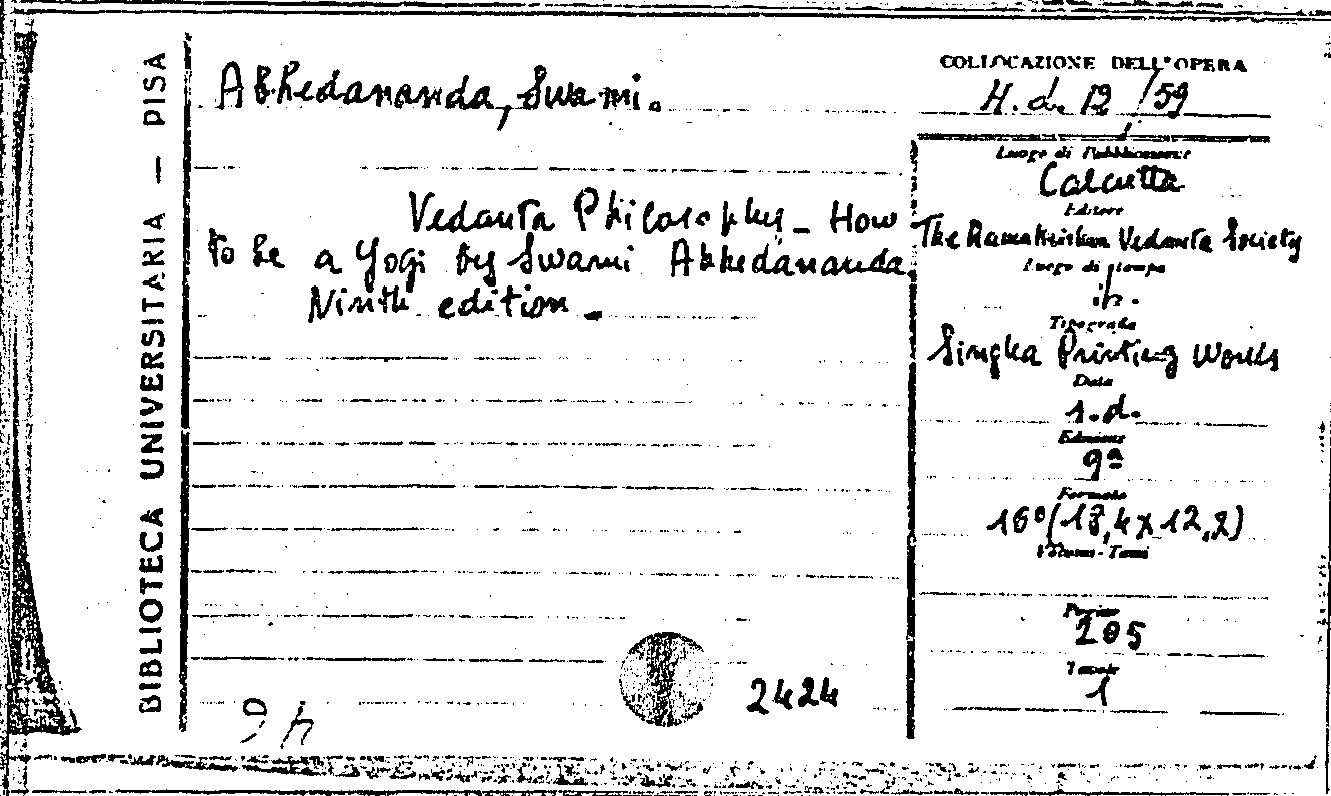 BIBLIOTECA UNIVERSITARIA — PISA
Abhedananda, Swami.
Vedanta Philosophy - How
to be a Yogi by Swami Abhedananda.
Ninth edition. -
2424
COLLOCAZIONE DELL'OPERA
H. d. 12 / 59
Luogo di Pubblicazione
Calcutta
Editore
The Ramakrishna Vedanta Society
Luogo di stampa
ib.
Tipografia
Singha Printing Works
Data
s.d.
Edizione
9ª
Formato
16° (18,4 x 12,2)
Volumi - Tomi
Pagine
205
Tavole
1